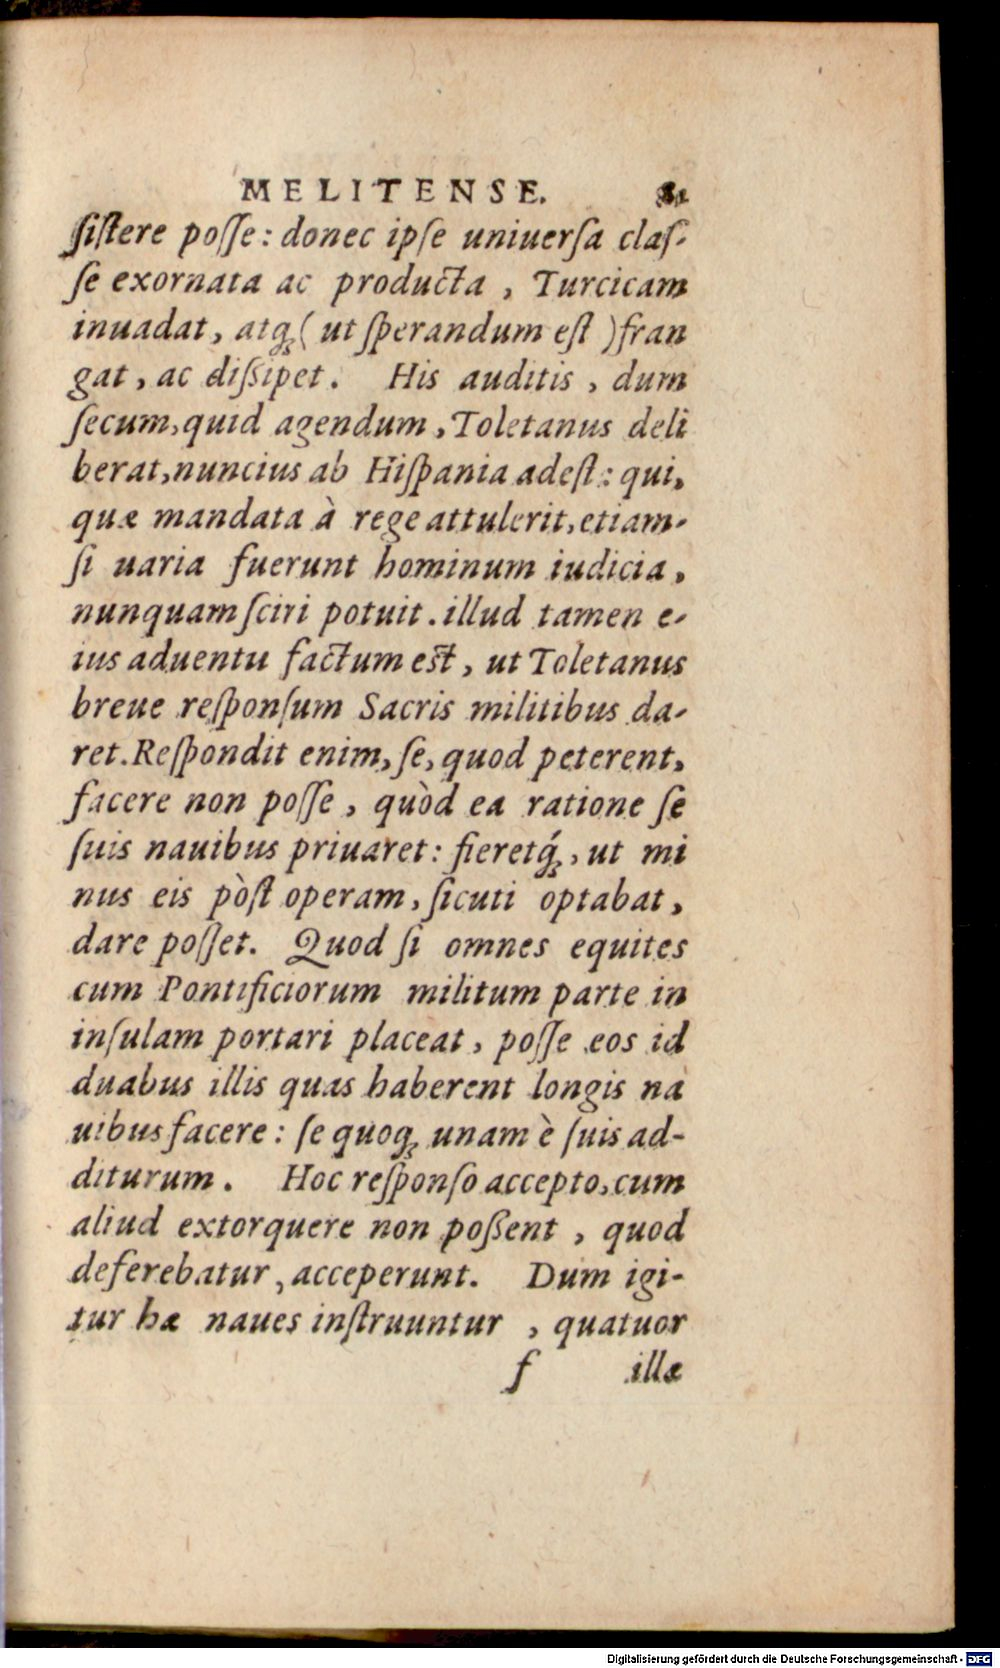 MELITENSE. 81
ſiſtere poſſe: donec ipſe uniuerſa claſ-
ſe exornata ac producta, Turcicam
inuadat, atq; (ut ſperandum eſt) fran
gat, ac diſsipet. His auditis, dum
ſecum, quid agendum, Toletanus deli
berat, nuncius ab Hiſpania adeſt: qui,
quæ mandata à rege attulerit, etiam-
ſi uaria fuerunt hominum iudicia,
nunquam ſciri potuit. illud tamen e-
ius aduentu factum est, ut Toletanus
breue reſponſum Sacris militibus da-
ret. Reſpondit enim, ſe, quod peterent,
facere non poſſe, quòd ea ratione ſe
ſuis nauibus priuaret: fieretq́;, ut mi
nus eis pòſt operam, ſicuti optabat,
dare poſſet. Quod ſi omnes equites
cum Pontificiorum militum parte in
inſulam portari placeat, poſſe eos id
duabus illis quas haberent longis na
uibus facere: ſe quoq; unam è ſuis ad-
diturum. Hoc reſponſo accepto, cum
aliud extorquere non poßent, quod
deferebatur, acceperunt. Dum igi-
tur hæ naues inſtruuntur, quatuor
f illæ
Digitalisierung gefördert durch die Deutsche Forschungsgemeinschaft - DFG